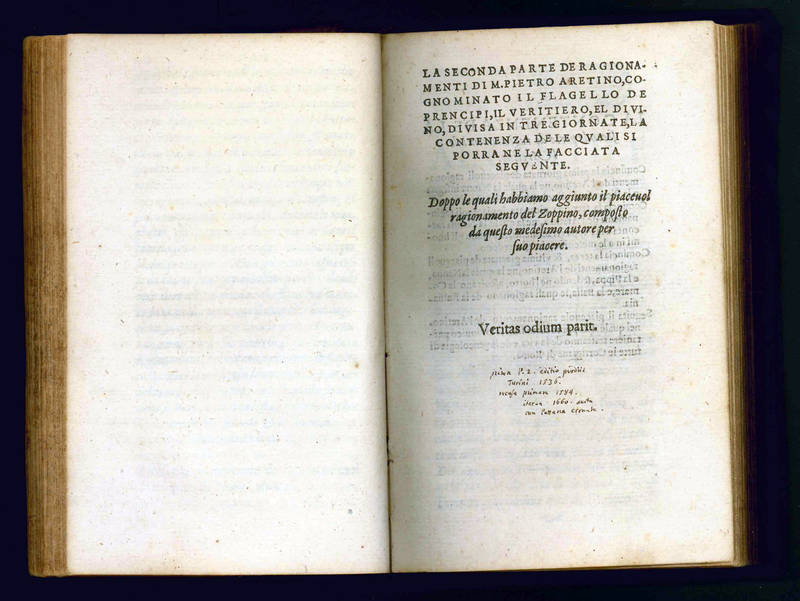 LA SECONDA PARTE DE RAGIONA-
MENTI DI M. PIETRO ARETINO, CO-
GNOMINATO IL FLAGELLO DE
PRENCIPI, IL VERITIERO, EL DIVI-
NO, DIVISA IN TRE GIORNATE, LA
CONTENENZA DE LE QVALI SI
PORRA NE LA FACCIATA
SEGVENTE.
Doppo le quali habbiamo aggiunto il piaceuol
ragionamento del Zoppino, composto
da questo medesimo autore per
suo piacere.
Veritas odium parit.
P. 2. editio prodiit
Turini 1536.
1584.
1660.